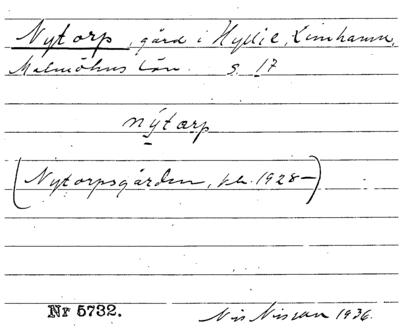 Nytorp, gård i Hyllie, Limhamn,
Malmöhus län. s. 17
nýtorp
(Nytorpsgården, 1928-)
Nr 5732.
Nils Nilsson 1936.